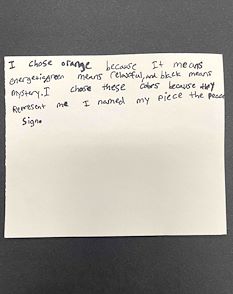 I chose orange because It means
energetic,green means relaxful, and black means
mystery. I chose these colors because they
Represent me I named my piece the peace
Sign.